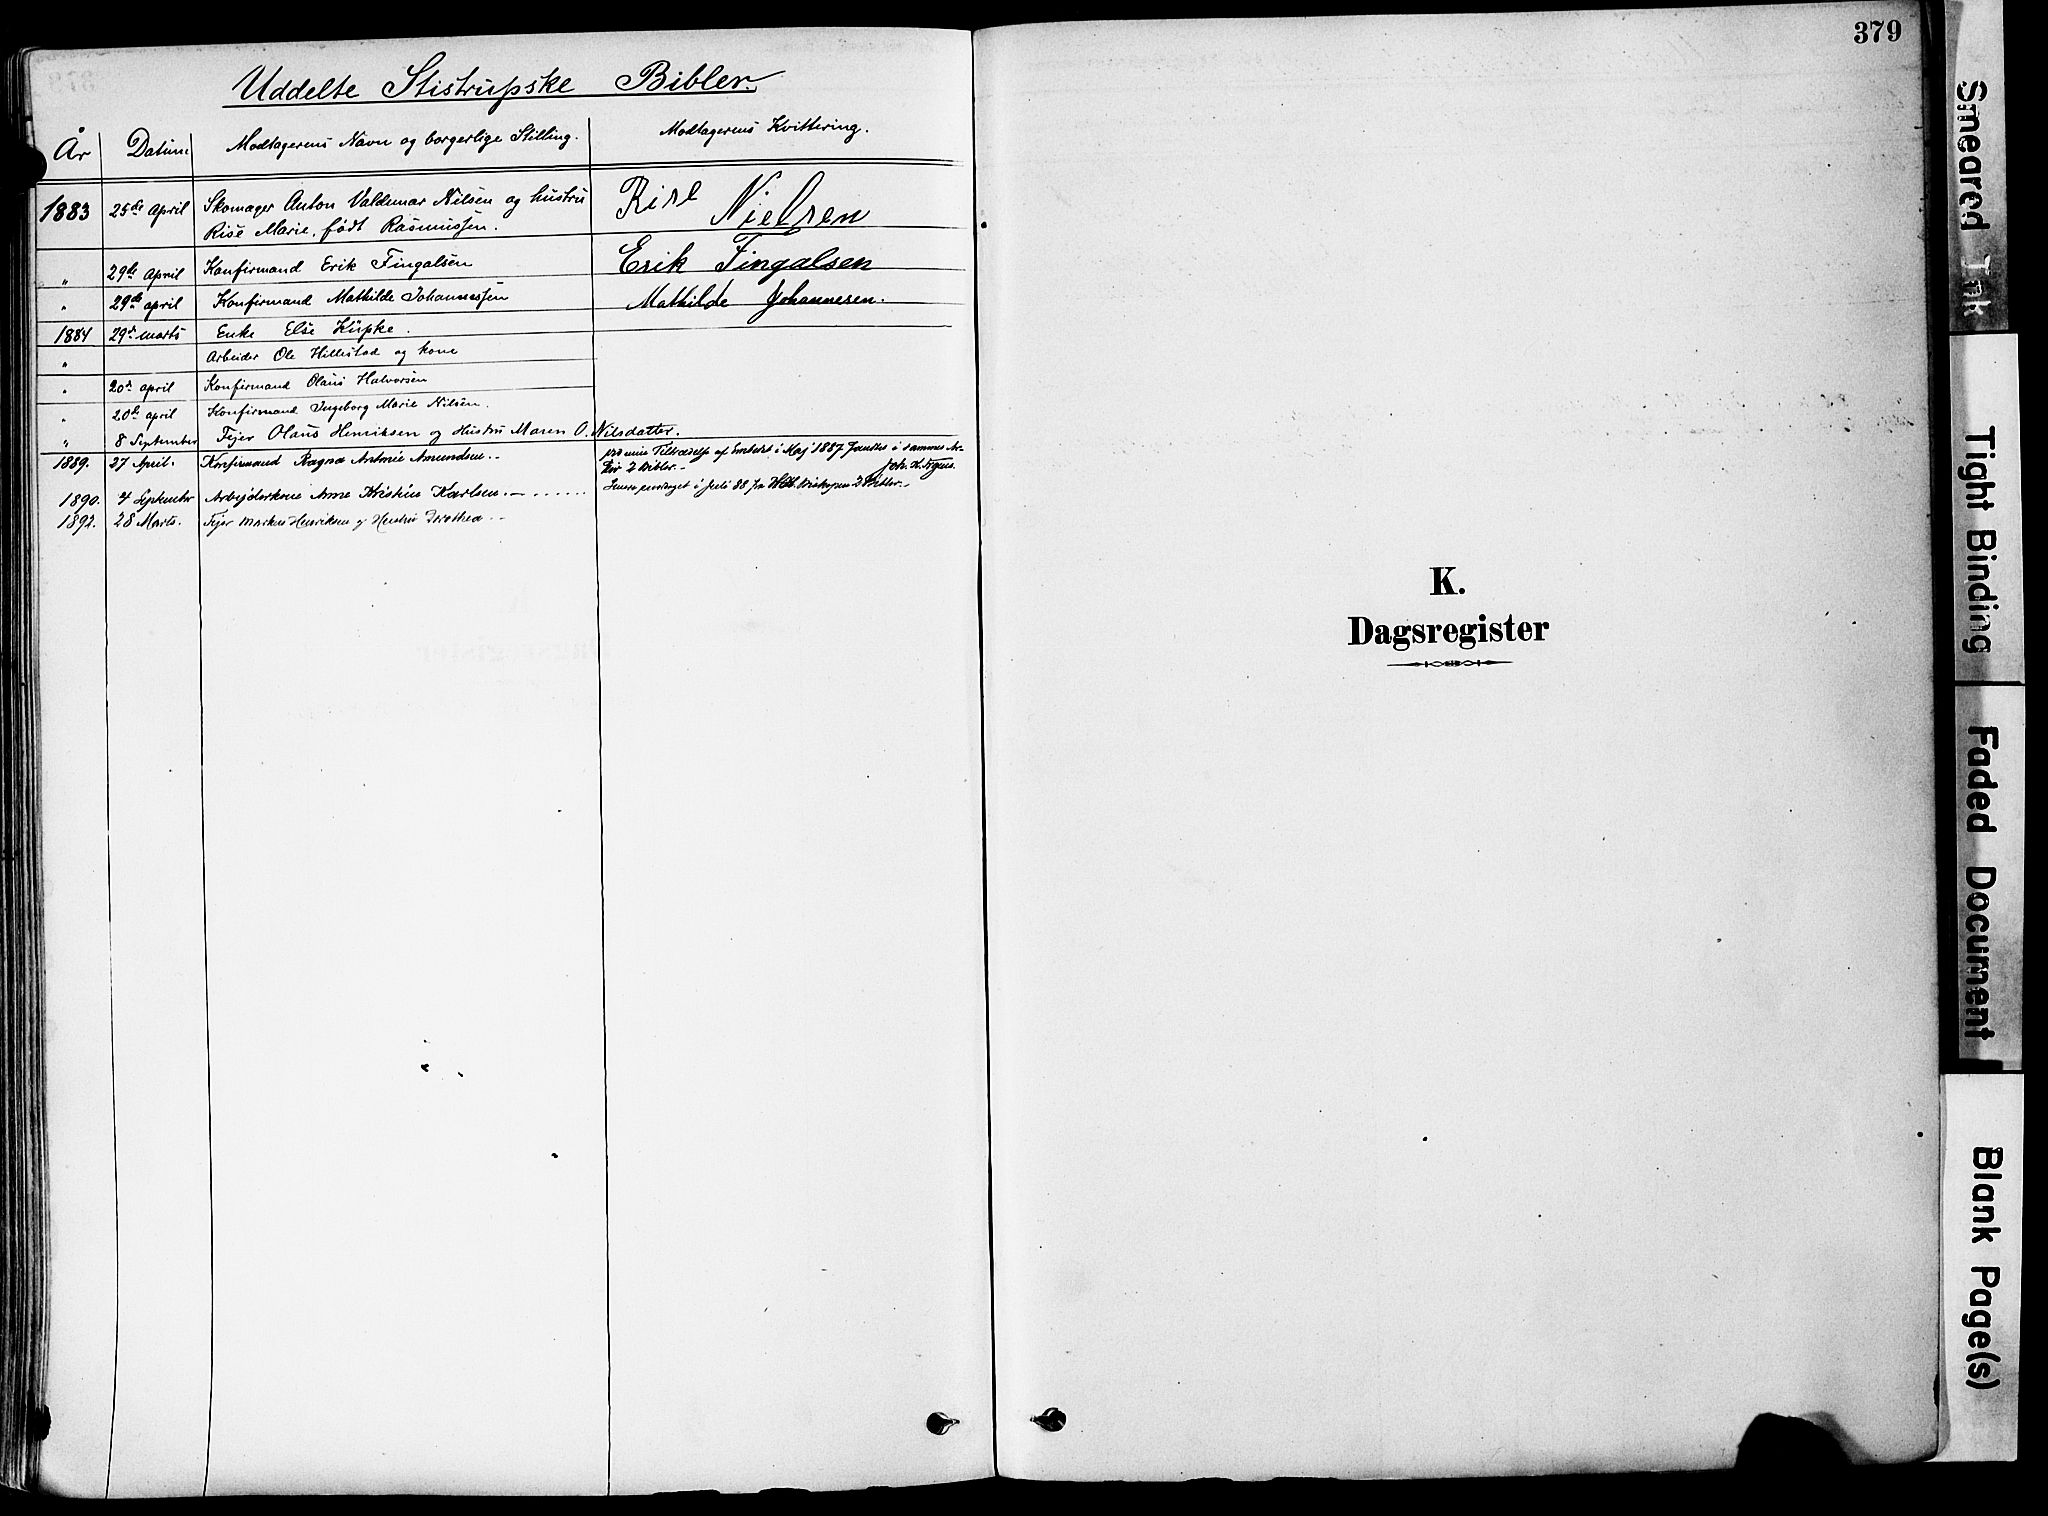 Uddelte Stistrupske Bibler.
År Datum Modtagerens Navn og borgerlige Stilling. Modtagerens Kvittering.
1883 25de April Skomager Anton Valdemar Nilsen og hustru Rise
Rise Marie, født Rasmussen. Nielsen
" 29de April Konfirmand Erik Fingalsen Erik Fingalsen
" 29de april Konfirmand Mathilde Johannessen Mathilde Johannesen.
1884 29de marts Enke Else Küpke.
" Arbeider Ole Hillestad og kone
" 20de april Konfirmand Olaus Halvorsen
" 20de april Konfirmand Ingeborg Marie Nilsen.
" 8 September Fejer Olaus Henriksen og Hustru Maren O. Nilsdatter.
1889. 27 April. Konfirmand Ragna Antonie Amundsen. Ved min Tiltrædelse af Embedet i Maj 1887 fandtes i sammes Ar-
kiv 2 Bibler.
1890. 4 Septembr Arbejderkone Anne Kristine Karlsen. Senere modtaget i Juli 88 fra Biskopen 2 Bibler.
1892. 28 Marts. Fejer Markus Henriksen og Hustru Dorothea
379
K.
Dagsregister
Smeared Ink
Tight Binding
Faded Document
Blank Page(s)